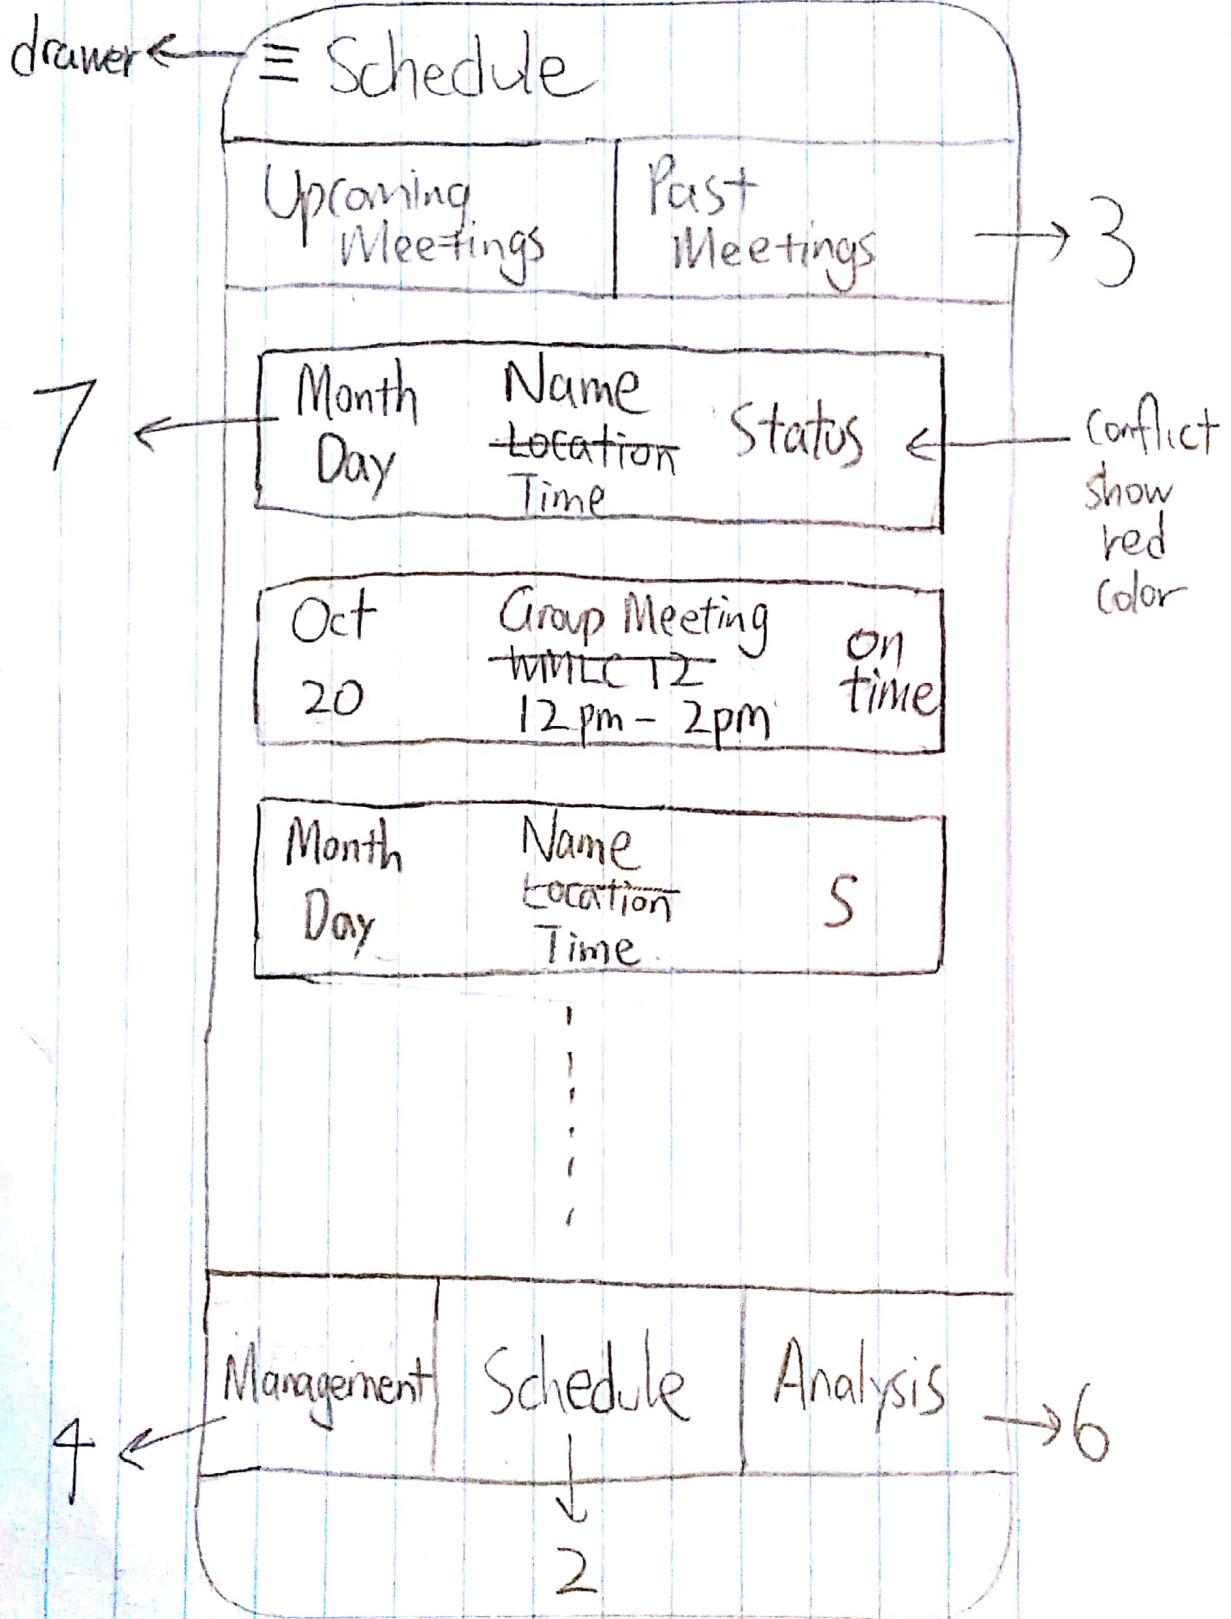 drawer
☰ Schedule
Upcoming
Meetings
Past
Meetings
3
7
Month
Day
Name
Location
Time
Status
Conflict
show
red
color
Oct
20
Group Meeting
WMLC 72
12pm - 2pm
on
time
Month
Day
Name
Location
Time
S
Management
Schedule
Analysis
4
2
6